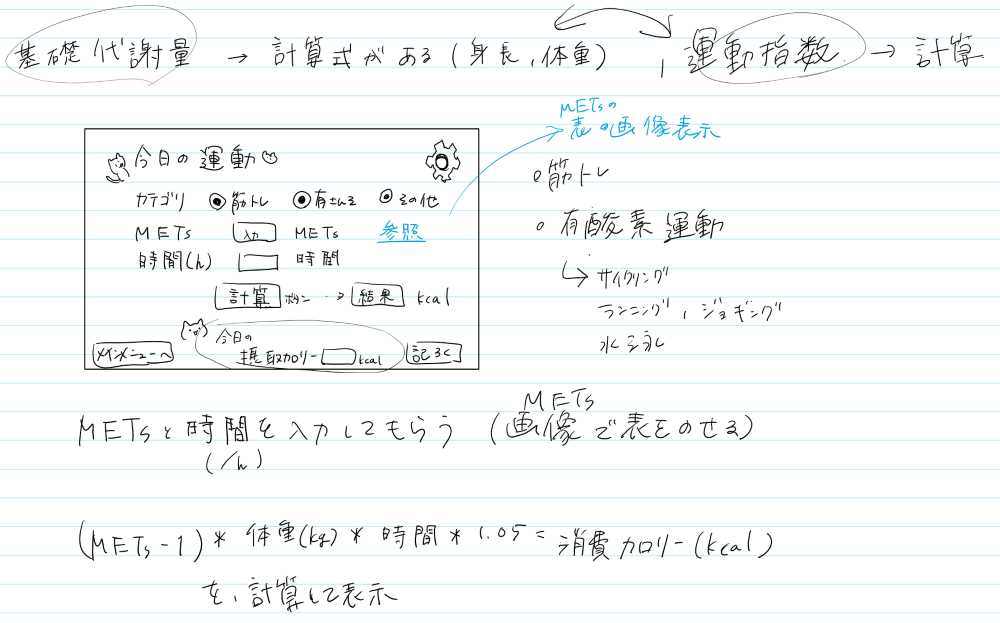 基礎代謝量 → 計算式がある (身長, 体重) , 運動指数 → 計算
METsの
表の画像表示
今日の運動
カテゴリ ◉筋トレ ◉有さんそ ◉その他
METs 入力 METs 参照
時間(h) 時間
計算 ボタン → 結果 kcal
今日の
摂取カロリー kcal
メインメニューへ
記ろく
○筋トレ
○有酸素運動
↳ サイクリング
ランニング, ジョギング
水泳
METsと時間を入力してもらう (画像で表をのせる)
METs
(/h)
(METs-1) * 体重(kg) * 時間 * 1.05 = 消費カロリー(kcal)
を、計算して表示